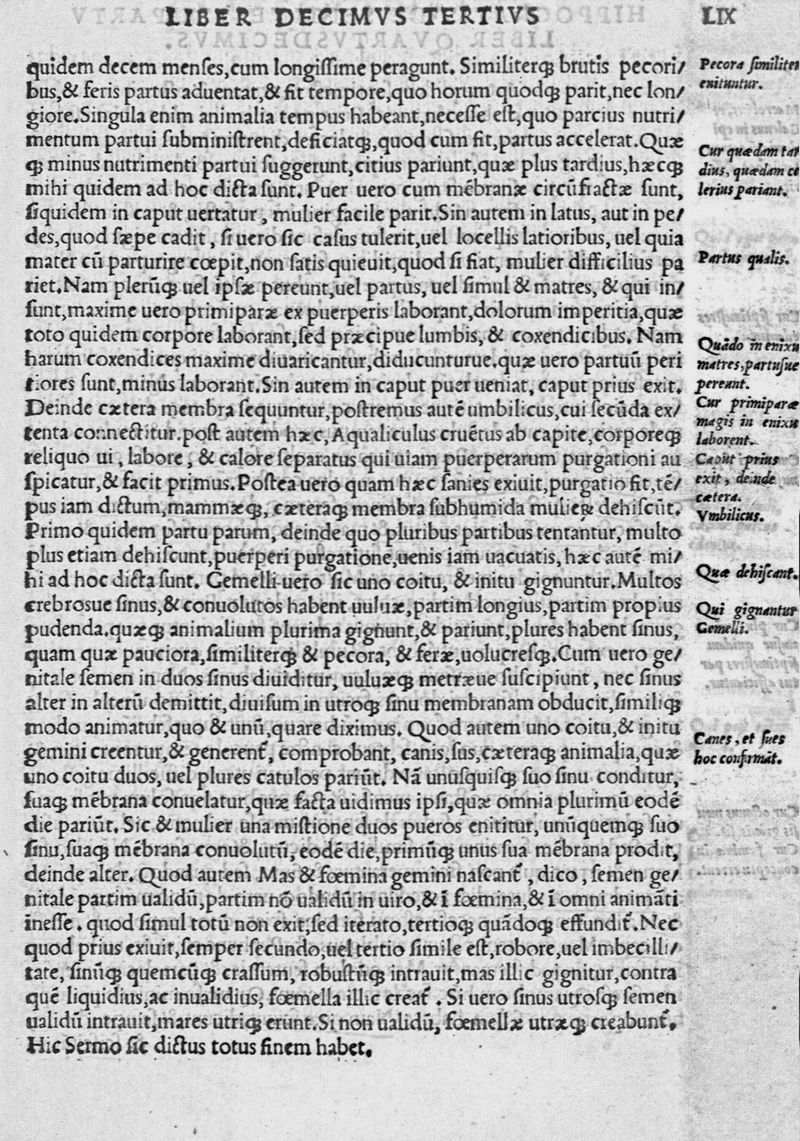 LIBER DECIMVS TERTIVS LIX
quidem decem menſes,cum longiſſime peragunt. Similiterq́ꝫ brutis pecori/
bus,& feris partus aduentat,& fit tempore,quo horum quodqꝫ parit,nec lon/
giore.Singula enim animalia tempus habeant,neceſſe eſt,quo parcius nutri/
mentum partui ſubminiſtrent,deficiatqꝫ,quod cum fit,partus accelerat.Quæ
qꝫ minus nutrimenti partui ſuggerunt,citius pariunt,quæ plus tardius,hæcqꝫ
mihi quidem ad hoc dicta ſunt. Puer uero cum mēbranæ circūfiactæ ſunt,
ſiquidem in caput uertatur , mulier facile parit.Sin autem in latus, aut in pe/
des,quod ſæpe cadit , ſi uero ſic caſus tulerit,uel locellis latioribus, uel quia
mater cū parturire cœpit,non ſatis quieuit,quod ſi fiat, mulier difficilius pa
riet.Nam plerūqꝫ uel ipſæ pereunt,uel partus, uel ſimul & matres, & qui in/
ſunt,maxime uero primiparæ ex puerperis laborant,dolorum imperitia,quæ
toto quidem corpore laborant,ſed præcipue lumbis, & coxendicibus. Nam
harum coxendices maxime diuaricantur,diducunturue.quæ uero partuū peri
tiores ſunt,minus laborant.Sin autem in caput puer ueniat, caput prius exit.
Deinde cætera membra ſequuntur,poſtremus autē umbilicus,cui ſecūda ex/
tenta connectitur.poſt autem hæc, Aqualiculus cruētus ab capite,corporeqꝫ
reliquo ui , labore , & calore ſeparatus qui uiam puerperarum purgationi au
ſpicatur,& facit primus.Poſtea uero quam hæc ſanies exiuit,purgatio fit,tē/
pus iam dictum,mammæqꝫ, cæteraqꝫ membra ſubhumida mulieꝝ dehiſcūt.
Primo quidem partu parum, deinde quo pluribus partibus tentantur, multo
plus etiam dehiſcunt,puerperi purgatione,uenis iam uacuatis, hæc autē mi/
hi ad hoc dicta ſunt. Gemelli uero ſic uno coitu, & initu gignuntur.Multos
crebrosue ſinus,& conuolutos habent uuluæ,partim longius,partim propius
pudenda.quæqꝫ animalium plurima gignunt,& pariunt,plures habent ſinus,
quam quæ pauciora,ſimiliterqꝫ & pecora, & feræ,uolucreſqꝫ.Cum uero ge/
nitale ſemen in duos ſinus diuiditur, uuluæqꝫ metræue ſuſcipiunt , nec ſinus
alter in alterū demittit,diuiſum in utroqꝫ ſinu membranam obducit,ſimiliqꝫ
modo animatur,quo & unū,quare diximus. Quod autem uno coitu,& initu
gemini creentur,& generenť, comprobant, canis,ſus,cæteraqꝫ animalia,quæ
uno coitu duos, uel plures catulos pariūt. Nā unuſquiſqꝫ ſuo ſinu conditur,
ſuaqꝫ mēbrana conuelatur,quæ facta uidimus ipſi,quæ omnia plurimū eodē
die pariūt. Sic & mulier una miſtione duos pueros enititur, unūquemqꝫ ſuo
ſinu,ſuaqꝫ mēbrana conuolutū, eodē die,primūqꝫ unus ſua mēbrana prodit,
deinde alter. Quod autem Mas & fœmina gemini naſcanť , dico , ſemen ge/
nitale partim ualidū,partim nō ualidū in uiro,& ī fœmina,& ī omni animāti
īneſſe . quod ſimul totū non exit,ſed iterato,tertioqꝫ quādoqꝫ effundiť. Nec
quod prius exiuit,ſemper ſecundo,uel tertio ſimile eſt,robore,uel imbecilli/
tate, ſinūqꝫ quemcūqꝫ craſſum, robuſtūqꝫ intrauit,mas illic gignitur,contra
quē liquidius,ac inualidius, fœmella illic creať . Si uero ſinus utroſqꝫ ſemen
ualidū intrauit,mares utriqꝫ erunt.Si non ualidū, fœmellæ utræqꝫ creabunť.
Hic Sermo ſic dictus totus finem habet.
Pecora ſimiliter
enituntur.
Cur quædam tar
dius, quædam ce
lerius pariant.
Partus qualis.
Quādo in enixu
matres,partuſue
pereunt.
Cur primiparæ
magis in enixu
laborent.
Caput prius
exit, deinde
cætera.
Vmbilicus.
Quæ dehiſcant.
Qui gignantur
Gemelli.
Canes, et ſues
hoc confirmāt.